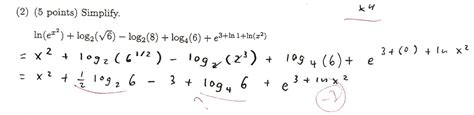 x4
(2) (5 points) Simplify.
ln(e^{x^2}) + log_2(√6) − log_2(8) + log_4(6) + e^{3+ln 1+ln(x^2)}
= x^2 + log_2(6^{1/2}) − log_2(2^3) + log_4(6) + e^{3+(0)+ln x^2}
= x^2 + 1/2 log_2 6 − 3 + log_4 6 + e^{3+ln x^2}
? −2